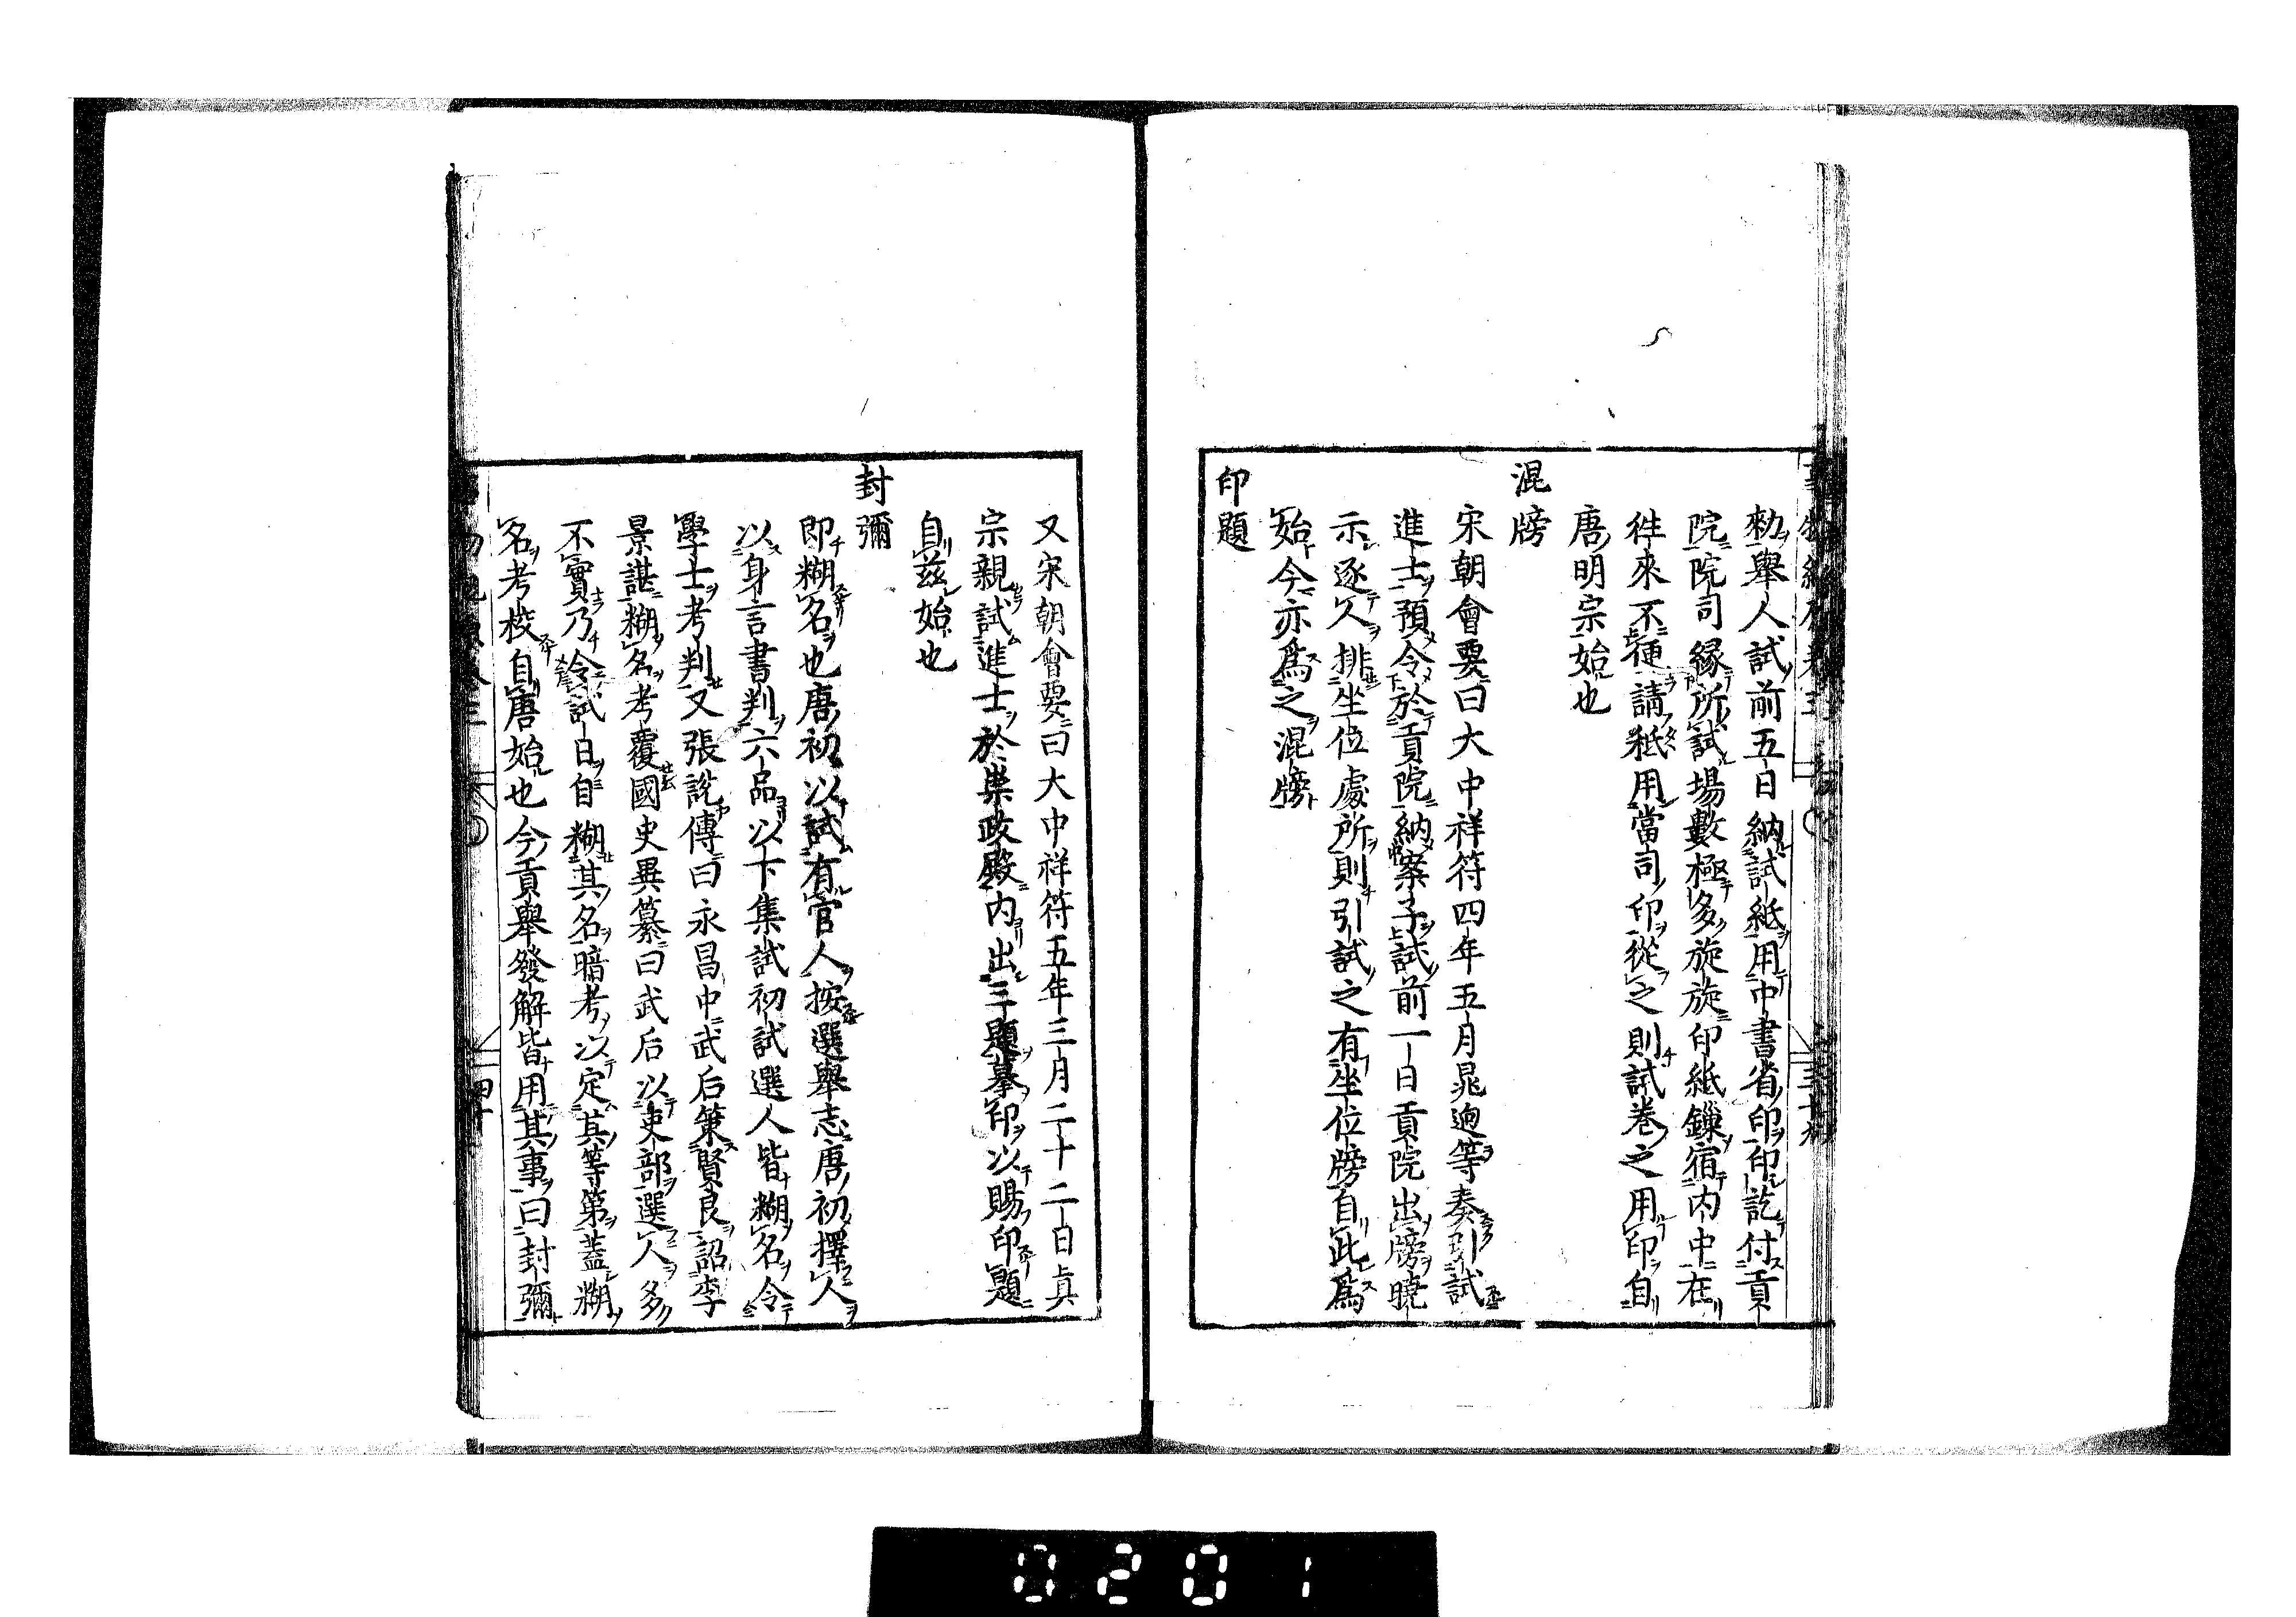 勑舉人試前五日納試紙用中書省印印訖付貢
院院司縁所試場數極多旋旋印紙鏁宿内中在
徃來不便請秖用當司印從之則試卷之用印自
唐明宗始也
混牓
宋朝會要曰大中祥符四年五月晁逈等奏引試
進士預令於貢院納案子試前一日貢院出牓曉
示逐人排坐位處所則引試之有坐位牓自此爲
始今亦爲之混牓
印題
又宋朝會要曰大中祥符五年三月二十二日眞
宗親試進士於崇政殿内出三題摹印以賜印題
自兹始也
封彌
即糊名也唐初以試有官人按選舉志唐初擇人
以身言書判六品以下集試初試選人皆糊名令
學士考判又張説傳曰永昌中武后策賢良詔李
景諶糊名考覆國史異纂曰武后以吏部選人多
不實乃令試日自糊其名暗考以定其等第蓋糊
名考校自唐始也今貢舉發解皆用其事曰封彌
四十
0201